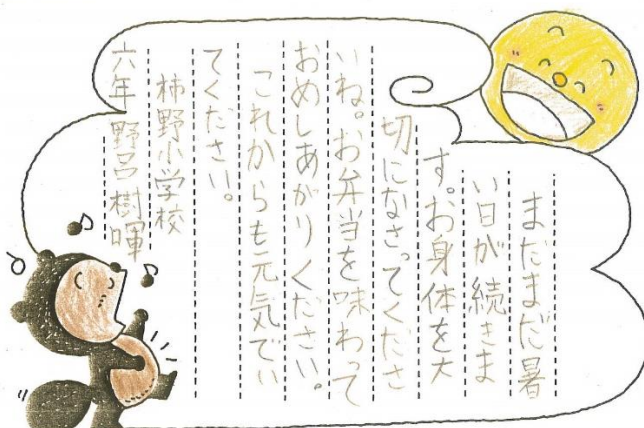 まだまだ暑
い日が続きま
す。お身体を大
切になさってくださ
いね。お弁当を味わって
おめしあがりください。
これからも元気でい
てください。
柿野小学校
六年 野呂樹暉